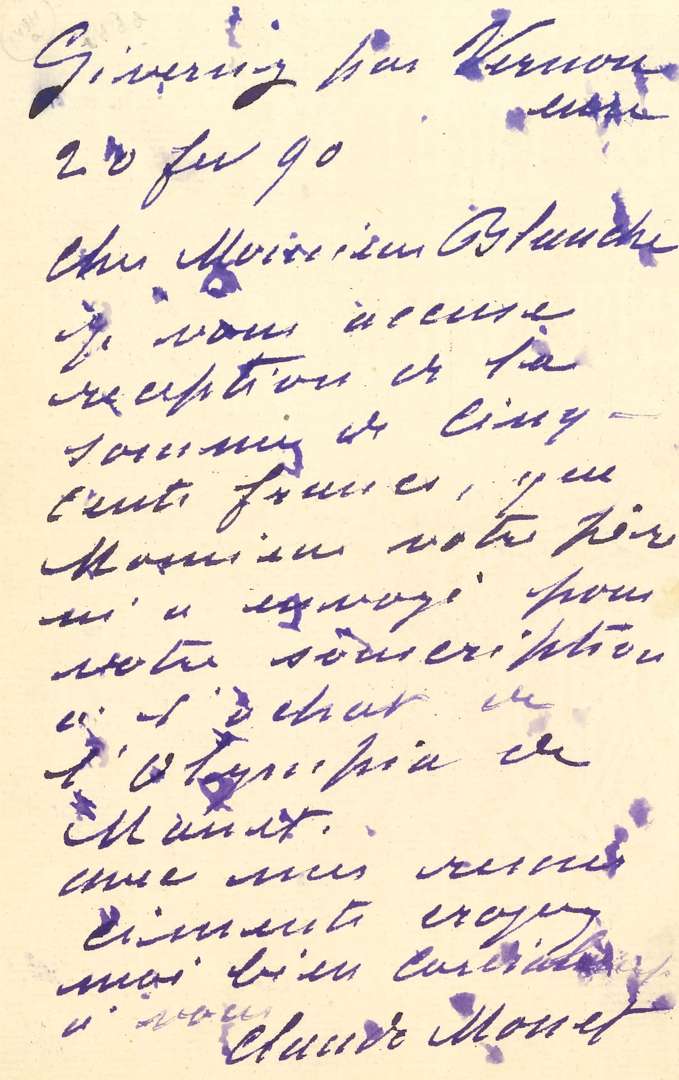 Giverny par Vernon
eure
20 fev 90
Cher Monsieur Blanche
Je vous accuse
reception de la
somme de cinq-
cents francs, que
Monsieur votre père
m'a envoyé pour
votre souscription
à l'achat de
l'Olympia de
Manet.
avec mes remer
ciments croyez
moi bien cordialement
à vous
Claude Monet